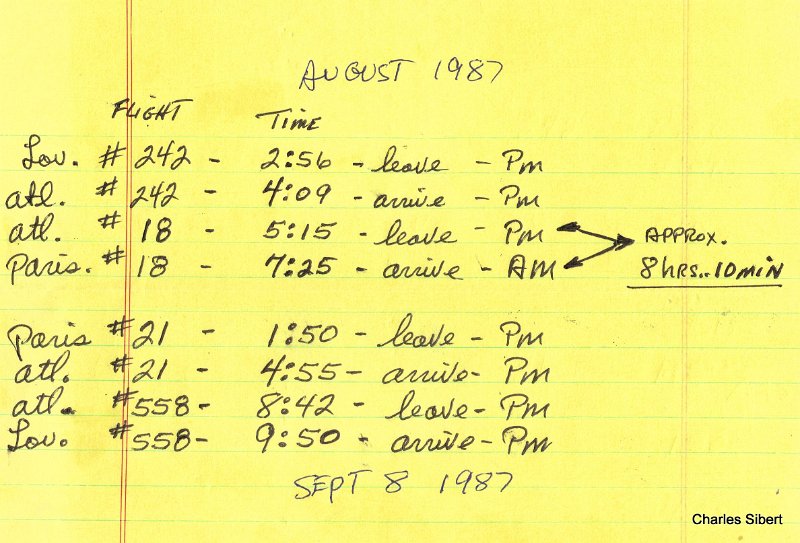 AUGUST 1987
FLIGHT TIME
Lov. # 242 - 2:56 - leave - Pm
atl. # 242 - 4:09 - arrive - Pm
atl. # 18 - 5:15 - leave - Pm
Paris. # 18 - 7:25 - arrive - AM
APPROX.
8 hrs.. 10 min
Paris # 21 - 1:50 - leave - Pm
atl. # 21 - 4:55 - arrive - Pm
atl. # 558 - 8:42 - leave - Pm
Lov. # 558 - 9:50 - arrive - Pm
SEPT 8 1987
Charles Sibert